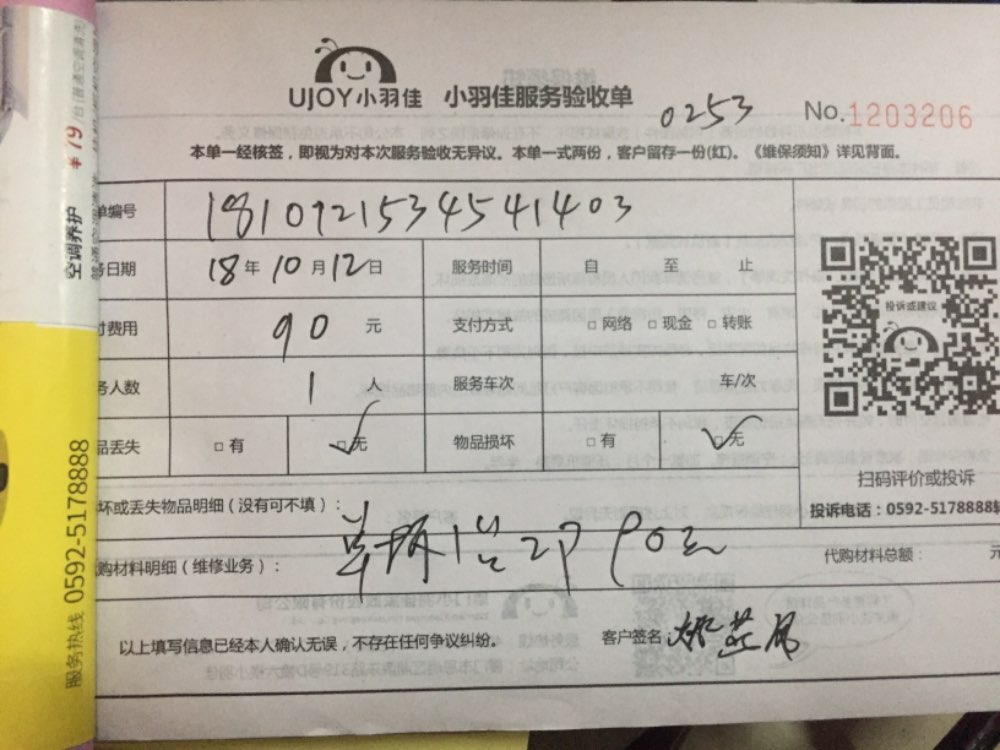 UJOY小羽佳 小羽佳服务验收单
0253
No.1203206
本单一经核签，即视为对本次服务验收无异议。本单一式两份，客户留存一份(红)。《维保须知》详见背面。
单编号 181092153454 1403
务日期 18年10月12日 服务时间 自 至 止
付费用 90 元 支付方式 □网络 □现金 □转账
务人数 1 人 服务车次 车/次
品丢失 □有 ☑无 物品损坏 □有 ☑无
投诉或建议
扫码评价或投诉
投诉电话：0592-5178888
坏或丢失物品明细（没有可不填）：
购材料明细（维修业务）： 90元
代购材料总额： 元
以上填写信息已经本人确认无误，不存在任何争议纠纷。 客户签名：
服务热线 0592-5178888
空调养护 ¥79